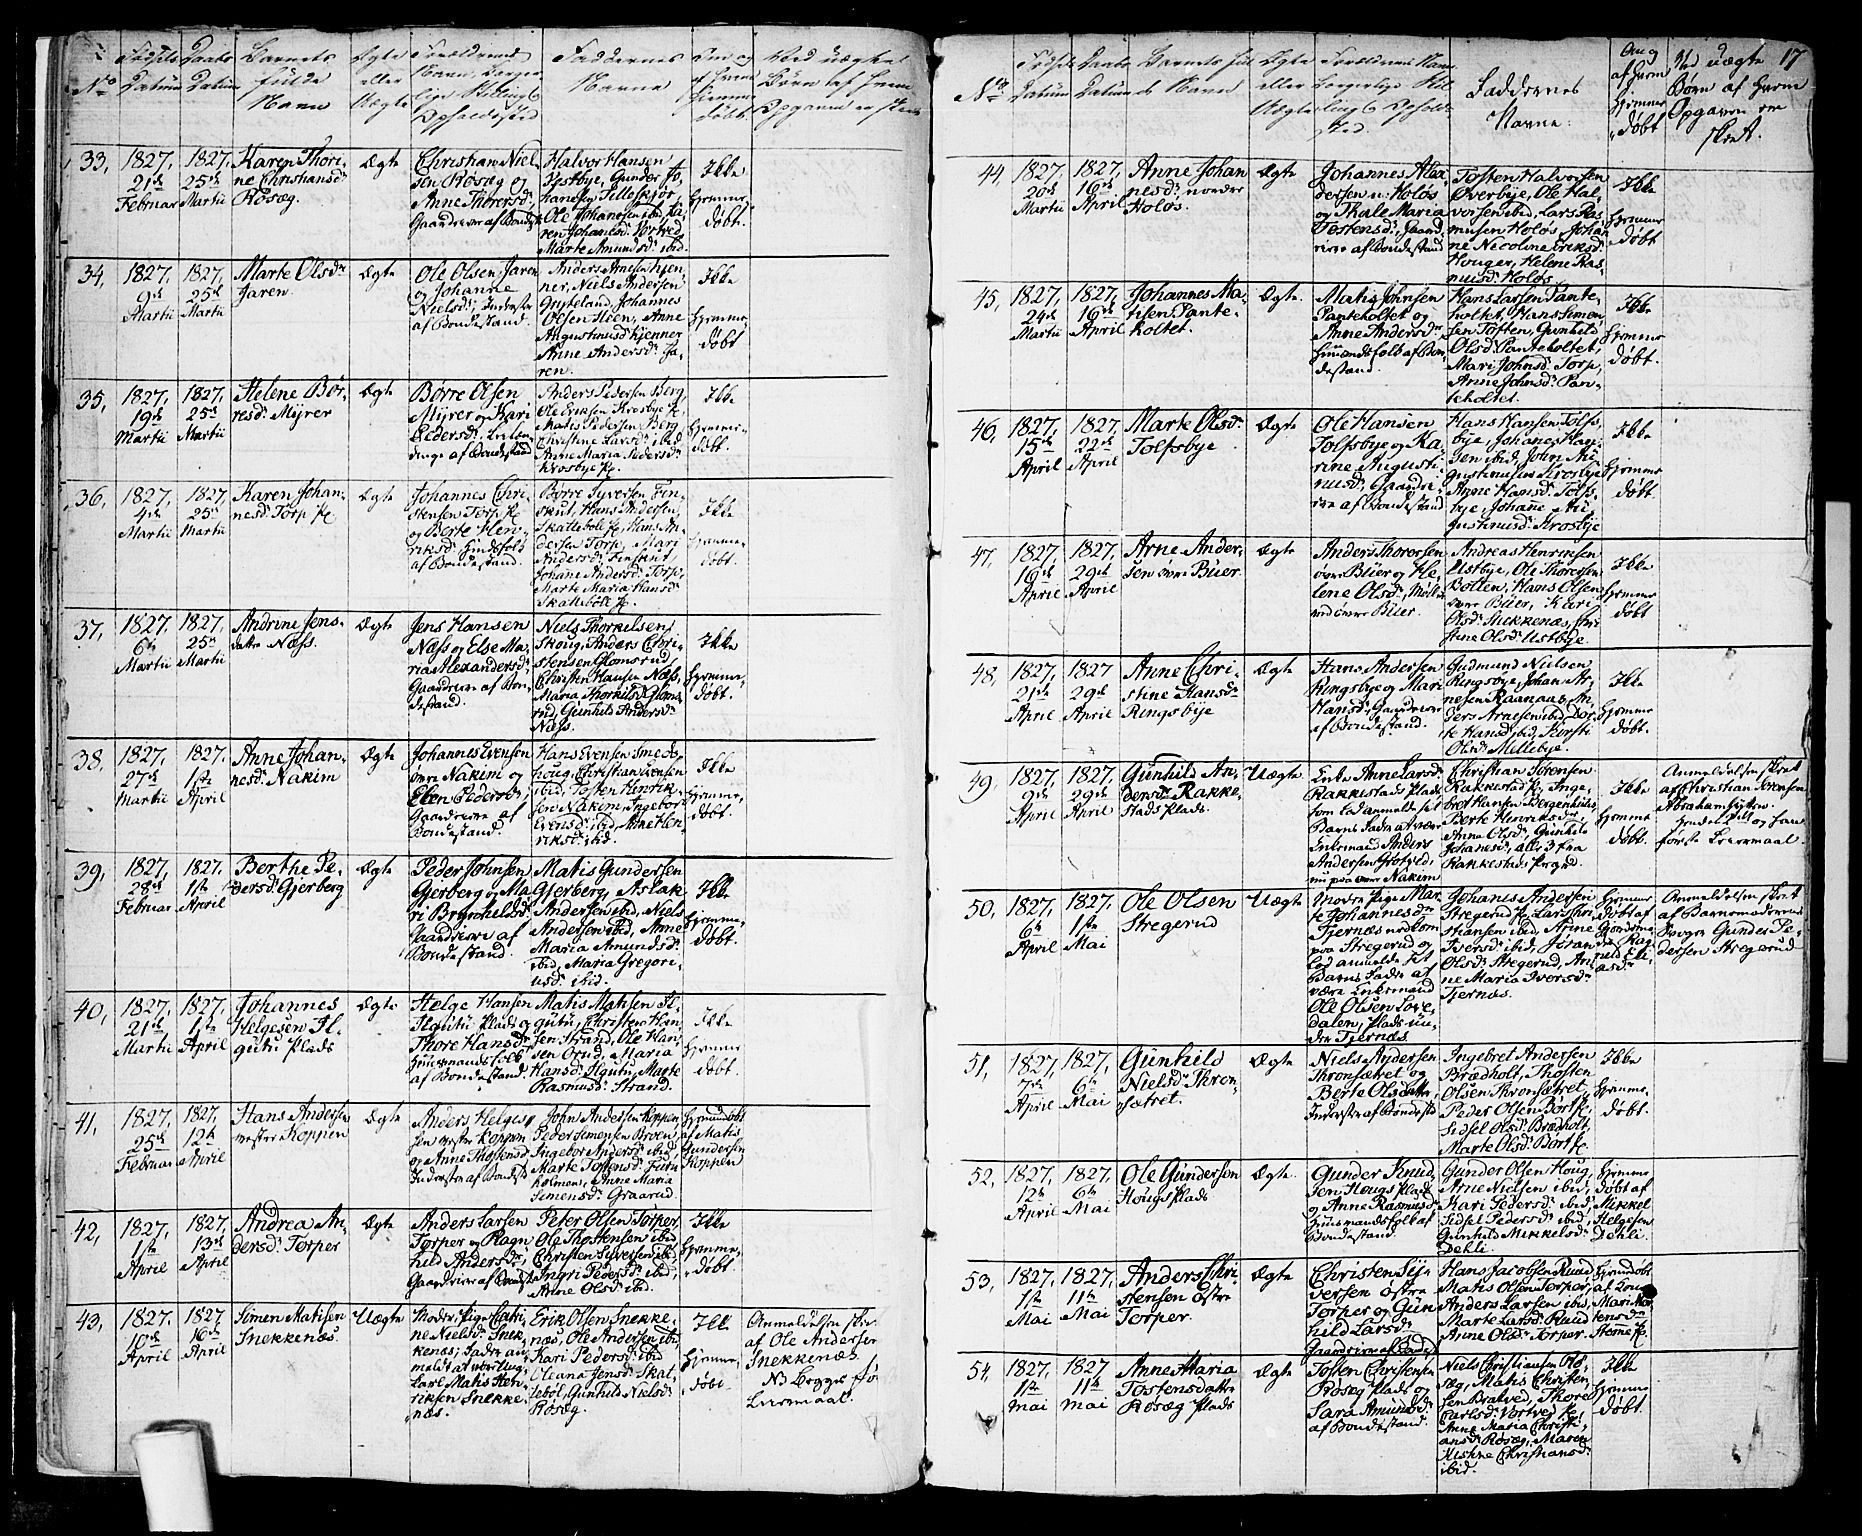 No
Fødsels Datum
Daabs Datum
Barnets fulde Navn
Ægte eller Uægte
Faddernes Navne
33,
1827,
21de
Februar
1827,
25de
Martii
Karen Thori-
ne Christiansdr
Rosæg.
Ægte
Christian Niel-
sen Rosæg og
Anne Thoresdr,
Gaardbrere af Bondest
Halvor Hansen
Ystbye, Gunder Jo-
hansen Telleskjør
Ole Johannesen ibid, Ka-
ren Johansdr Vortved
Marte Amundsdr ibid.
Ikke
hjemme-
døbt.
34,
1827,
9de
Martii
1827,
25de
Martii
Marte Olsdr
Jaren
Ægte
Ole Olsen Jaren
og Johanne
Nielsdr, Inderster
af Bondestand.
Anders Arnesen Kjen-
ner, Niels Andersen
Gryteland, Johannes
Olsen Steen, Anne
Augustinusdr Kjenner
Anne Andersdr Ja-
ren.
Ikke
hjemme-
døbt
35,
1827,
19de
Martii
1827,
25de
Martii
Helene Bør-
resdr Myrer
Ægte
Børre Olsen
Myrer og Kari
Pedersdr,
af Bondestand
Anders Pedersen Berg,
Ole Eriksen Krosbye
Matis Pedersen Berg
Christine Larsdr ibid
Anne Maria Pedersdr
Krosbye
Ikke
hjemme-
døbt.
36,
1827,
4de
Martii
1827,
25de
Martii
Karen Johan-
nesdr Torp
Ægte
Johannes Chri-
stensen Torp
og Berte Hen-
riksdr
af Bondestand.
Børre Syversen Fin-
skut, Hans Andersen
Skallebøle, Hans An-
dersen Torp, Mari
Andersdr Finskut,
Johane Andersdr Torp,
Marte Maria Hansdr
Skallebøle
Ikke
hjemme-
døbt.
37,
1827
6te
Martii
1827,
25de
Martii
Andrine Jens-
datter Næss.
Ægte
Jens Hansen
Næss og Else Ma-
ria Alexandersdr
Gaardbrere af Bon-
destand.
Niels Thorkelsen
Skoug, Anders Chri-
stensen Glomsrud
Christen Hansen Næss,
Maria Thorkilsdr Gloms-
rud, Gunhild Andersdr
Næss.
Ikke
hjemme-
døbt.
38,
1827,
27de
Martii
1827.
1ste
April
Anne Johan-
nesdr Nakim
Ægte
Johannes Evensen
øvre Nakim og
Elen Pedersdr,
Gaardbrere af
Bondestand.
Hans Evensen Smeds-
houg, Christian Evensen
ibid, Tosten Henrik-
sen Nakim, Ingeborg
Evensdr ibid, Anne Hen-
riksdr ibid.
Ikke
hjemme-
døbt.
39,
1827,
28de
Februar
1827.
1ste
April
Berthe Pe-
dersdr Gjerberg
Ægte
Peder Johnsen
Gjerberg og Ma-
ri Brynhelsdr
Gaardbrere af
Bondestand.
Matis Gundersen
Gjerberg, Aslak
Andersen ibid, Niels
Andersen ibid, Anne
Maria Amundsdr
ibid, Maria Gregori-
usdr ibid.
Ikke
hjemme-
døbt.
40,
1827,
21de
Martii
1827.
1ste
April
Johannes
Helgesen Il-
gutu plads
Ægte
Helge Hansen
Ilgutu plads og
Thore Hansdr
Huusmandsfolk
af Bondestand.
Matis Matisen Il-
gutu, Christen Han-
sen Strand, Ole Han-
sen Orud, Maria
Hansdr Ilgutu, Marte
Rasmusdr Strand.
Ikke
hjemme-
døbt.
41,
1827,
25de
Februar
1827.
12te
April
Hans Andersen
vestre Koppen
Ægte
Anders Helges-
sen vestre Koppen
og Anne Thostensdr
Inderster af Bondest
John Andersen Koppen
Peder Simensen Broen
Ingebor Andersdr ibid,
Marte Tostensdr Furu-
holmen, Anne Maria
Simensdr Graarud.
Hjemdøbt
af Matis
Gundersen
Koppen
42,
1827,
1ste
April
1827.
13de
April
Andrea An-
dersdr Torper
Ægte
Anders Larsen
Torper og Ragn-
hild Andersdr,
Gaardbrere af Bondest
Peter Olsen Torper,
Ole Thostensen ibid,
Christen Syversen ibid,
Ingri Pedersdr ibid,
Anne Olsdr ibid.
Ikke
hjemme-
døbt
43,
1827.
10de
April
1827
16de
April
Simen Matisen
Snekkenæs
Uægte
Moder: Pige Catri-
ne Nielsdr Snek-
kenæs; Fader an-
meldt at være Ung-
karl Matis Hen-
riksen Snekke-
næs.
Erik Olsen Snekke-
næs, Ole Andersen ibid,
Kari Pedersdr ibid
Oleana Jensdr Skal-
lebøl, Gunhild Nielsdr
Rosæg.
Ikke
hjemme-
døbt
Anmeldelsen skeet
af Ole Andersen
Snekkenæs.
NB Begges 1ste
Leiermaal.
17
No
Fødsels Datum
Daabs Datum
Barnets fulde Navn
Ægte eller Uægte
Faddernes
Navne.
44,
1827,
20de
Martii
1827,
16de
April
Anne Johan-
nesdr nordre
Holøs.
Ægte
Johannes Alex-
andersen n. Holøs
og Thale Maria
Tostensdr, Gaard-
brere af Bondestand
Tosten Halvorsen
Øverbye, Ole Hal-
vorsen ibid, Lars Ras-
musen Holøs, Johan-
ne Nicoline Eriksdr
Houger, Helene Ras-
musdr Holøs
Ikke
hjemme-
døbt
45,
1827,
24de
Martii
1827,
16de
April
Johannes Ma-
tisen Pante-
holtet.
Ægte.
Matis Johnsen
Panteholtet og
Anne Andersdr
Huusmandsfolk af Bon-
destand.
Hans Larsen Pante-
holtet, Hans Simen-
sen Toften, Gunhild
Olsdr Panteholtet,
Mari Johnsdr Torp,
Anne Johnsdr Pan-
teholtet.
Ikke
hjemme-
døbt.
46,
1827.
15de
April
1827,
22de
April
Marte Olsdr
Tolfsbye
Ægte
Ole Hansen
Tolfsbye og Ka-
rine Augusti-
nusdr, Gaardbre-
re af Bondestand
Hans Hansen Tolfs-
bye, Johanes Han-
sen ibid, John Au-
gustinusen Krosbye
Anne Hansdr Tolfs-
bye, Johane Au-
gustinusdr Krosbye
Ikke
hjemme-
døbt.
47,
1827,
16de
April
1827,
29de
April
Arne Ander-
sen øvre Büer.
Ægte
Anders Thoresen
øvre Büer og He-
lene Olsdr,
ved øvre Büer.
Andreas Henriksen
Ustbye, Ole Thoresen
Botten, Hans Olsen
øvre Büer, Kari
Olsdr Mekkenæs,
Anne Olsdr Ustbye
Ikke
hjemme-
døbt
48,
1827,
21de
April
1827
29de
April
Anne Chri-
stine Hansdr
Ringsbye
Ægte
Hans Andersen
Ringsbye og Mari
Hansdr, Gaardbrere
af Bondestand.
Gudmund Nielsen
Ringsbye, Johan Ar-
nesen Raanaas, An-
ders Arnesen ibid, Bør-
te Hansdr ibid, Kjersti
Olsdr Millebye.
Ikke
hjemme-
døbt.
49,
1827,
9de
April
1827
29de
April
Gunhild An-
dersdr Rakke-
stads plads.
Uægte
Enke Anne Larsdr
Rakkestads plads
som lod anmelde sit
Barns Fader at være
Enkemand Anders
Andersen Grøtved,
nu paa øvre Nakim
Christian Sørensen
Rakkestad, Inge-
bret Hansen Bergenhuus,
Berte Henriksdr,
Anna Olsdr, Gunhild
Johansdr, alle 3 fra
Rakkestads Prgd.
Ikke
hjemme-
døbt.
Anmeldelsen skeet
af Christian Sørensen
Hendes 2det og hans
første Leiermaal
50,
1827.
6te
April
1827.
1ste
Mai
Ole Olsen
Stregerud
Uægte
Moder: Pige Mar-
te Johannesdr
Tjernæs nedkom
paa Stregerud og
lod anmelde sit
Barns Fader at
være Enkemand
Ole Olsen Løve-
dalen, plads un-
der Tjernæs.
Johanes Andersen
Stregerud, Lars Chri-
stiansen ibid, Anne
Iversdr ibid, Johan
Olsdr Stegerud, An-
ne Maria Iversdr
Tjernæs.
Hjemme-
døbt af
Gjordemo-
der Rag-
nild Eli-
asdr
Anmeldelsen skeet
af Barnemoderens
Svoger Gunder Pe-
dersen Stregerud
51,
1827,
7de
April
1827,
6te
Mai
Gunhild
Nielsdr Thron-
sætret.
Ægte
Niels Andersen
Thronsætret og
Berte Olsdatter
Inderster af Bondestd
Ingebret Andersen
Brædholt, Thosten
Olsen Thronsætret,
Peder Olsen Bort,
Sidsel Olsdr Brædholt,
Marte Olsdr Bort
Ikke
hjemme-
døbt.
52,
1827,
12te
April
1827,
6te
Mai
Ole Gundersen
Hougs plads
Ægte.
Gunder Knud-
sen Hougs plads
og Anne Rasmusdr
Huusmandsfolk af
Bondestand.
Gunder Olsen Houg,
Arne Nielsen ibid,
Kari Pedersdr ibid,
Sidsel Pedersdr ibid,
Gunhild Mikkelsdr
Dehli.
Hjemme-
døbt af
Mikkel
Helgesen
Dehli.
53,
1827.
1ste
Mai
1827.
11te
Mai
Anders Chri-
stensen østre
Torper.
Ægte
Christen Sy-
versen østre
Torper og Gun-
hild Larsdr
Gaardbrere af Bondest
Hans Jacobsen Ruud
Matis Olsen Torper,
Anders Larsen ibid,
Marte Larsdr Ruud
Anne Olsdr Torper.
Hjemdøbt
af Enke
Mari Mor-
tensdr
54,
1827
11te
Mai
1827
11te
Mai
Anne Maria
Tostensdatter
Rosæg plads
Ægte
Tosten Christensen
Rosæg plads og
Sara Amundsdr
af Bondestand.
Niels Christiansen Ro-
sæg, Matis Christen-
sen Bratved, Thore
Carlsdr Vortvet,
Anne Maria Christi-
ansdr Rosæg, Maren
Kistine Christiansdr
ibid.
Ikke
hjemme-
døbt.